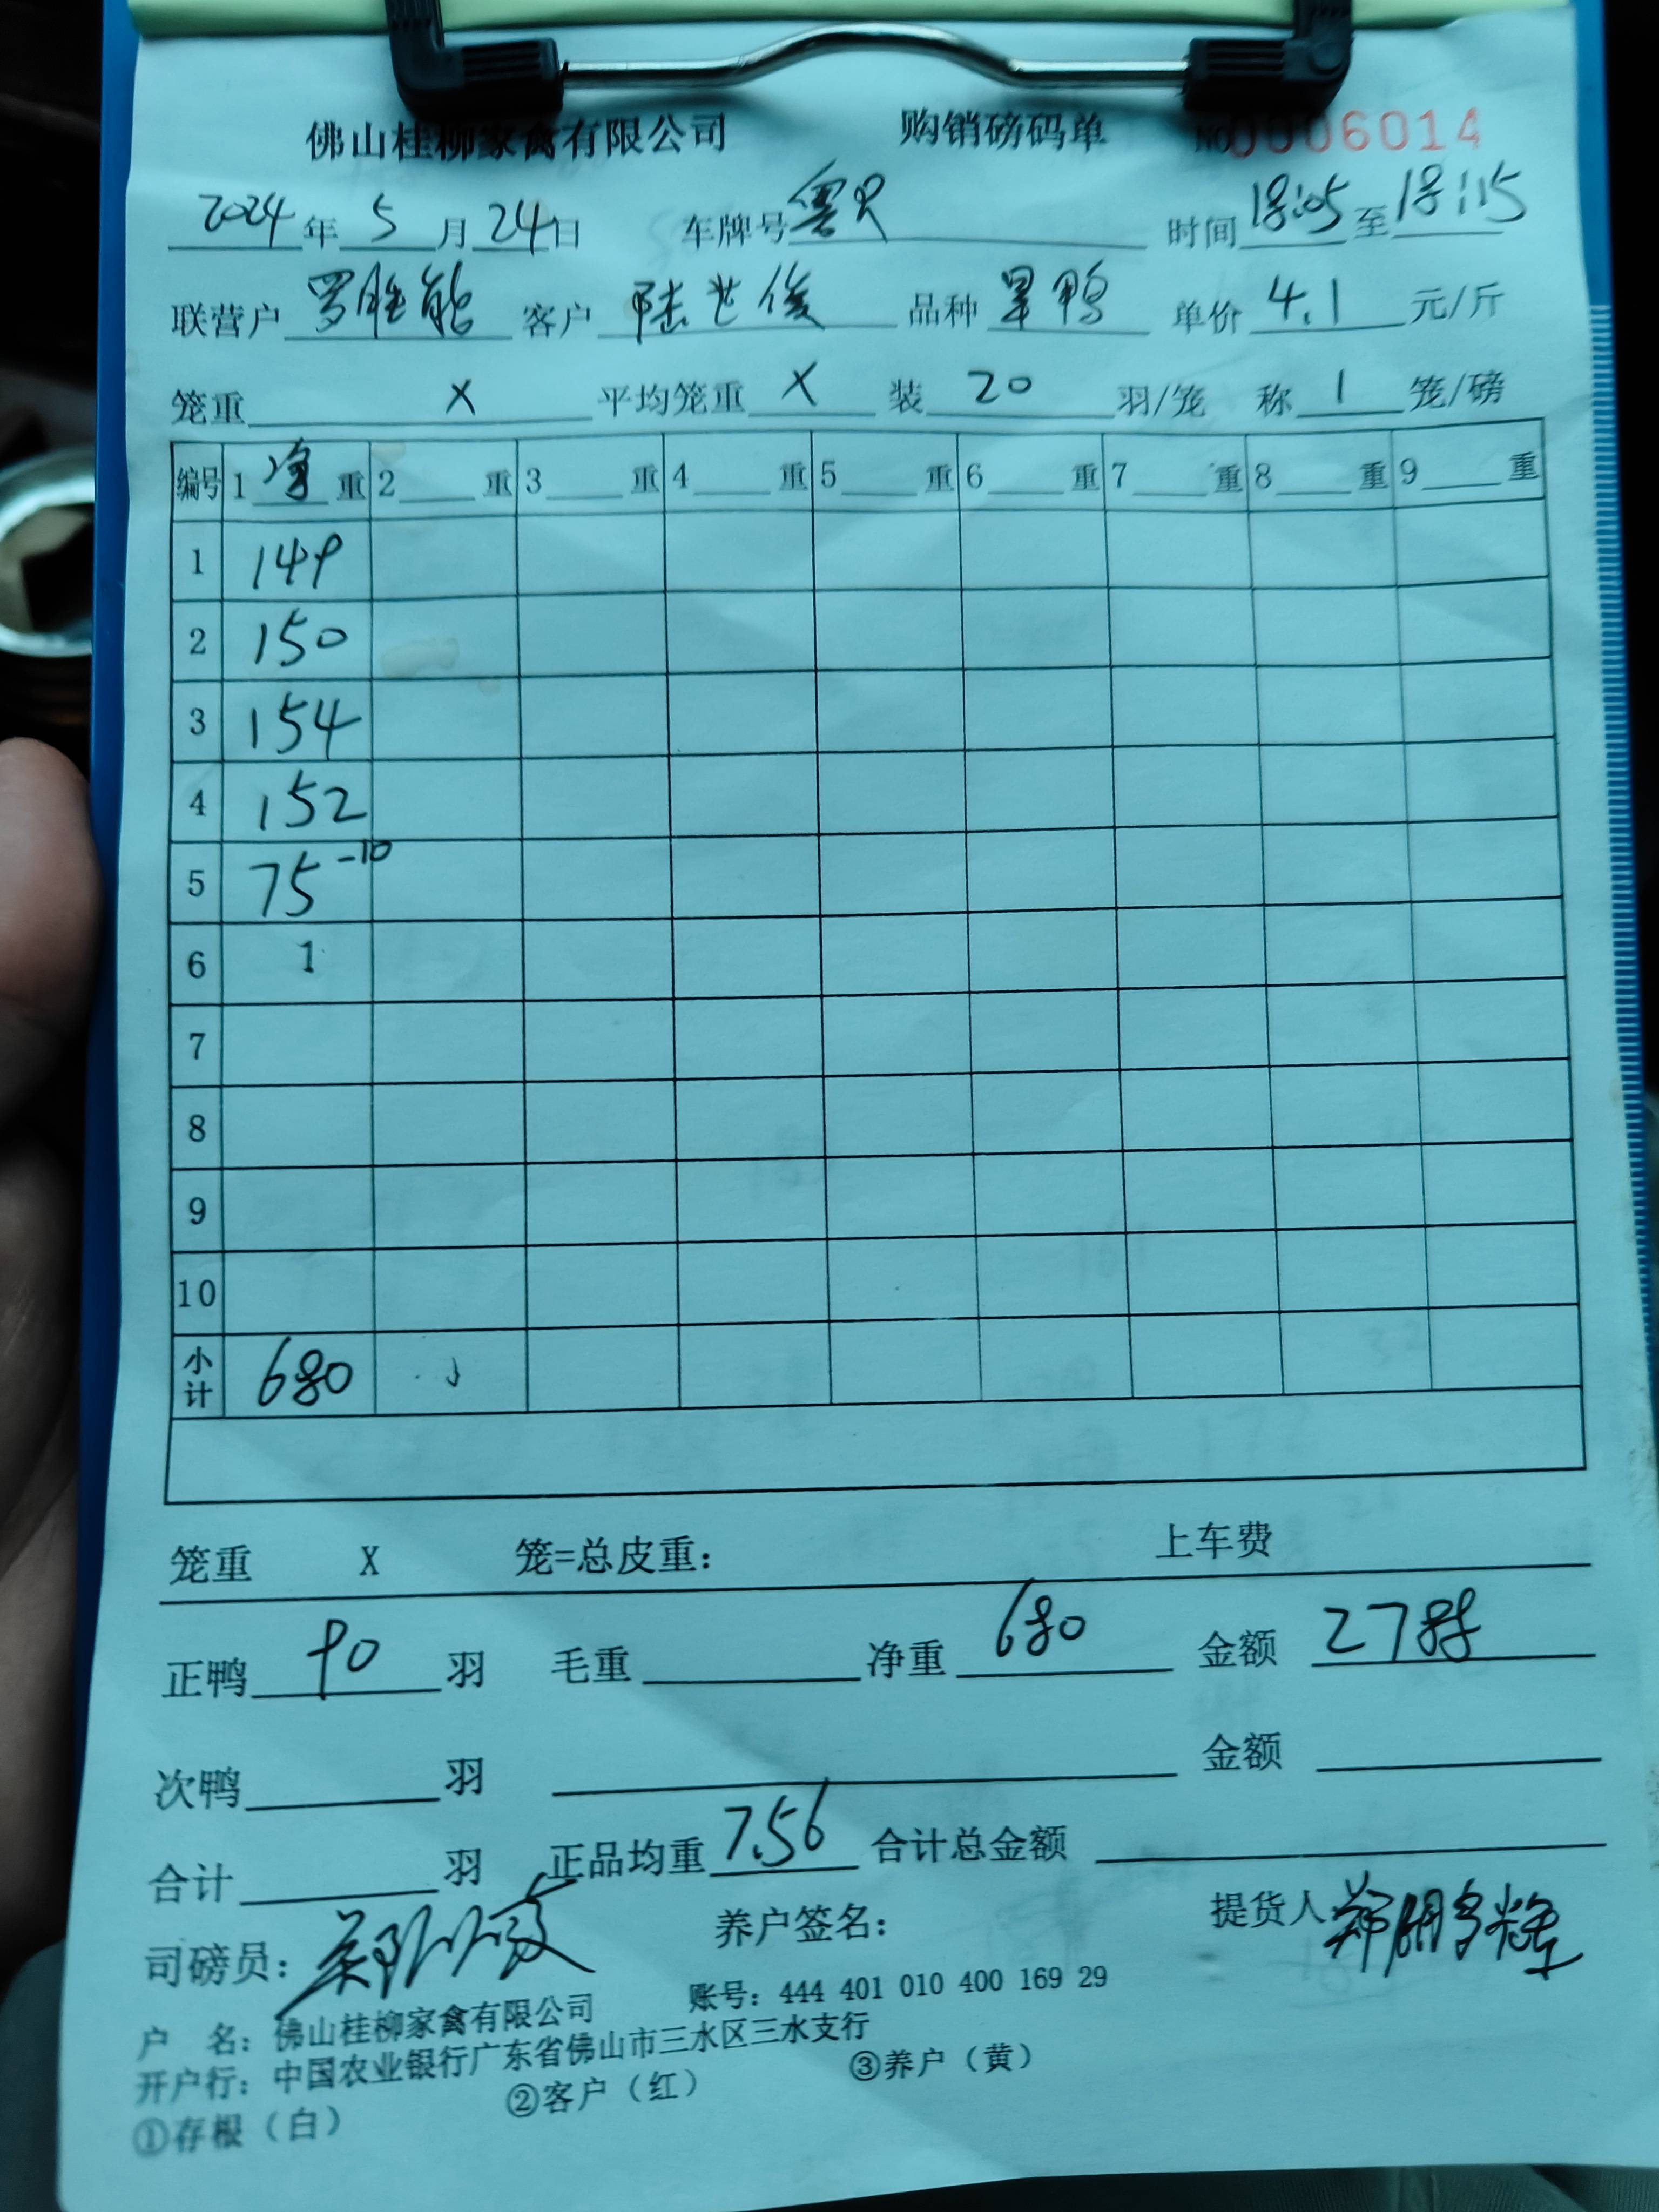 佛山桂柳家禽有限公司 购销磅码单 No0006014
2024年5月24日 车牌号 时间18:05至18:15
联营户罗胜能 客户陆世俊 品种旱鸭 单价4.1元/斤
笼重X 平均笼重X 装20羽/笼 称1笼/磅
编号 1净重 2重 3重 4重 5重 6重 7重 8重 9重
1 149
2 150
3 154
4 152
5 75-10
6 1
7
8
9
10
小计 680
笼重 X 笼=总皮重: 上车费
正鸭90羽 毛重 净重680 金额2788
次鸭 羽 金额
合计 羽 正品均重7.56 合计总金额
司磅员: 养户签名: 提货人
户 名: 佛山桂柳家禽有限公司 账号: 444 401 010 400 169 29
开户行: 中国农业银行广东省佛山市三水区三水支行
①存根（白） ②客户（红） ③养户（黄）